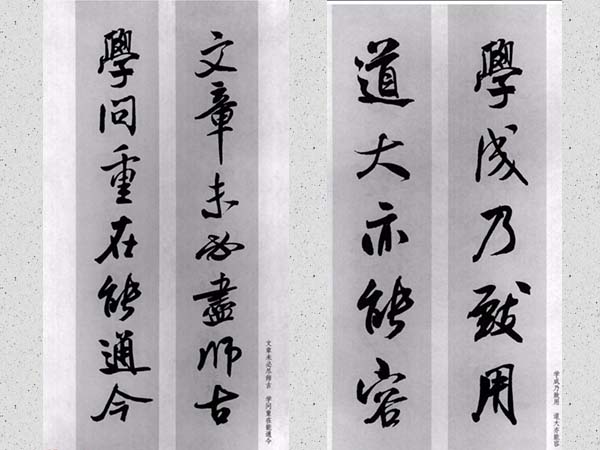 學成乃致用
道大亦能容
学成乃致用 道大亦能容
文章未必盡師古
學問重在能通今
文章未必尽师古 学问重在能通今